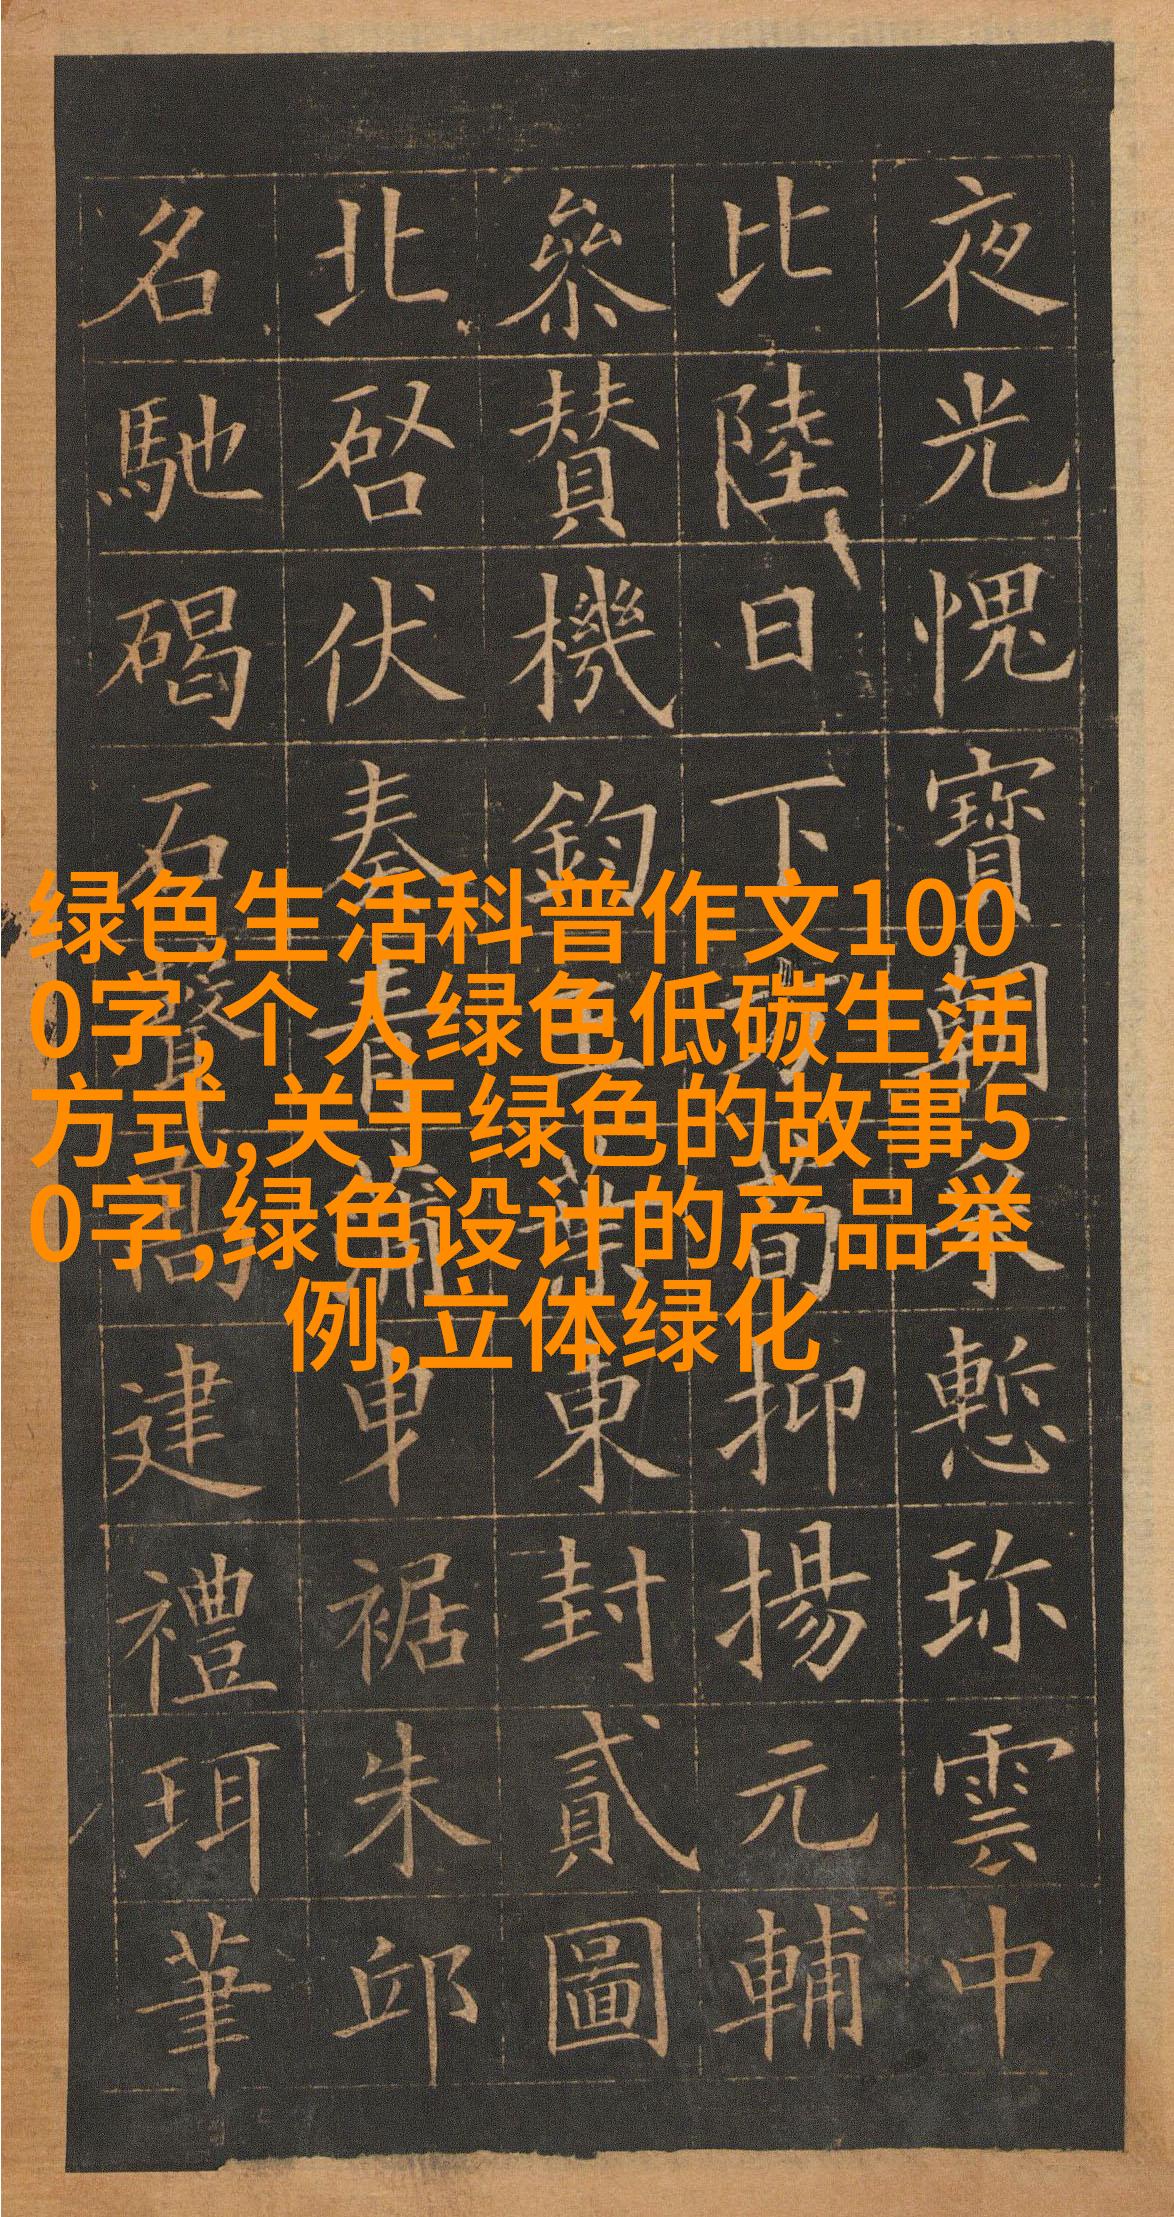 绿色生活科普作文100
0字,个人绿色低碳生活
方式,关于绿色的故事5
0字,绿色设计的产品举
例,立体绿化
夜光愧寶朝采慙珎雲中
比陸日下方荀抑揚元輔
參賛機鈞葉東封貳圖
北啓伏奏青蒲曳裾朱邸
名馳碣石聲高建禮珥筆